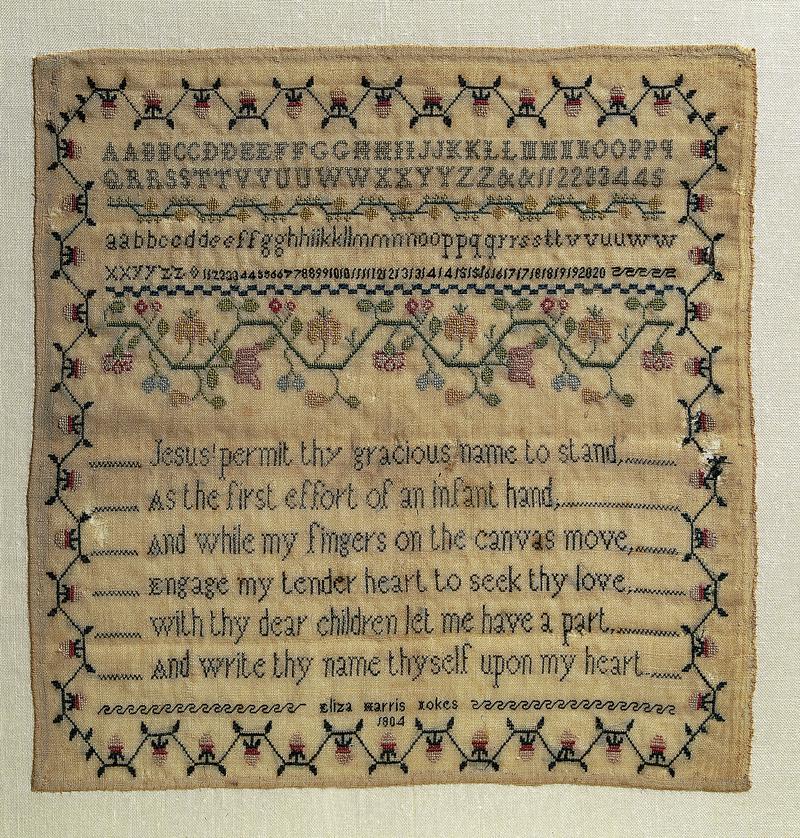 AABBCCDDEEFFGGHHIIJJKKLLMMNNOOPPQ
QRRSSTTVVUUWWXXYYZZ&&112233445
aabbccddeeffgghhiikkllmmnnooppqqrrssttvvuuww
xxyyzz 11223344556677889910101111121213131414151516161717181819192020
Jesus! permit thy gracious name to stand,
As the first effort of an infant hand,
And while my fingers on the canvas move,
Engage my tender heart to seek thy love,
with thy dear children let me have a part
And write thy name thyself upon my heart
Eliza Harris
1804